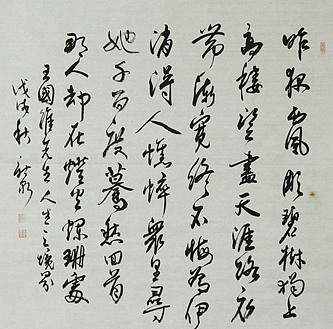 昨夜西風彫碧樹獨上
高樓望盡天涯路衣
帶漸寬終不悔為伊
消得人憔悴眾里尋
她千百度驀然回首
那人却在燈火闌珊處
王國維先生人生之境界
戊戌秋